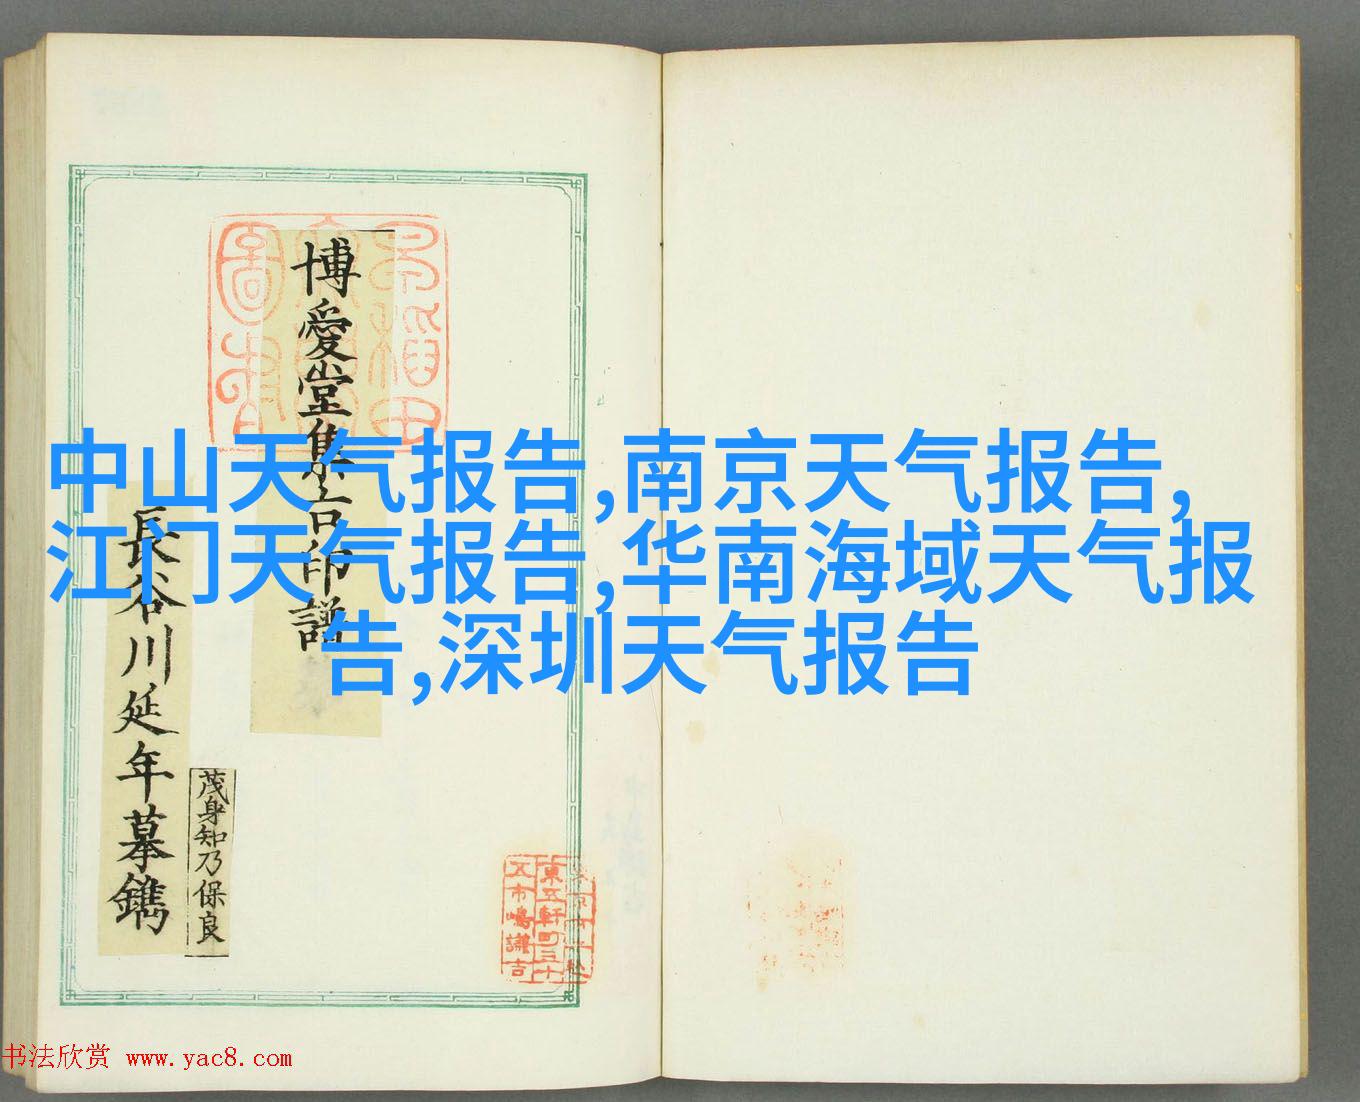 博愛堂集古印譜
長谷川延年摹鐫
茂身知乃保良
中山天气报告,南京天气报告,
江门天气报告,华南海域天气报
告,深圳天气报告
東五軒町三十
五市嶋謙吉
书法欣赏 www.yac8.com